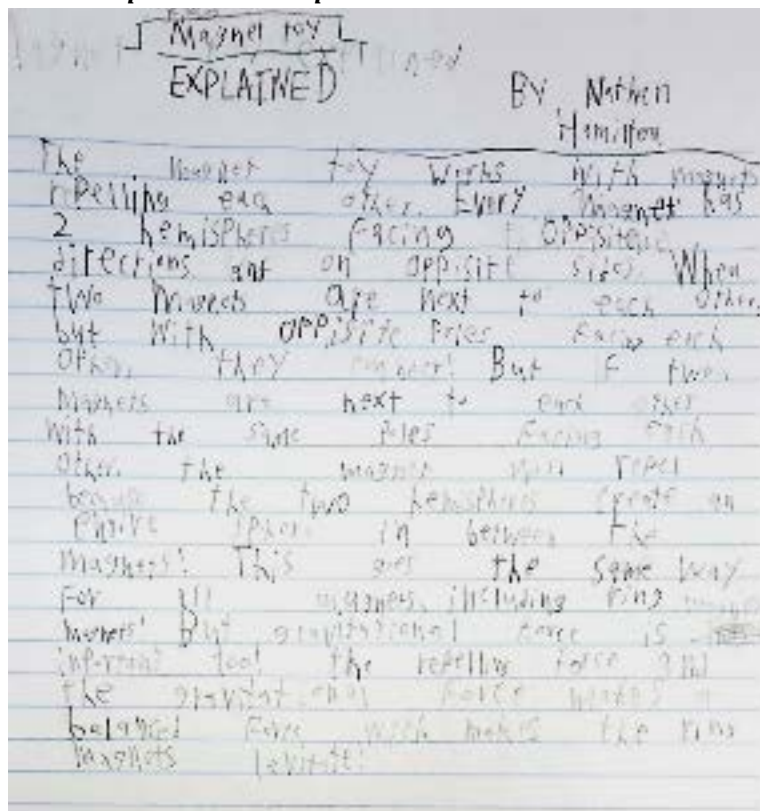 Magnet toy
EXPLAINED
BY Nathen
Hamilton
The magnet toy works with magnets
repelling each other. Every magnet has
2 hemispheres facing oppisite
directions and on oppisite sides. When
two magnets are next to each other,
but with oppisite poles facing each
other, they But if two
magnets are next to each other
with the same poles facing each
other, the magnets will repel
because the two hemispheres create an
entire sphere in between the
magnets! This goes the same way
For all magnets, including ring
magnets! But gravitational force is
important too! the repelling force and
the gravitational force makes a
balanced force with makes the ring
magnets levitate!